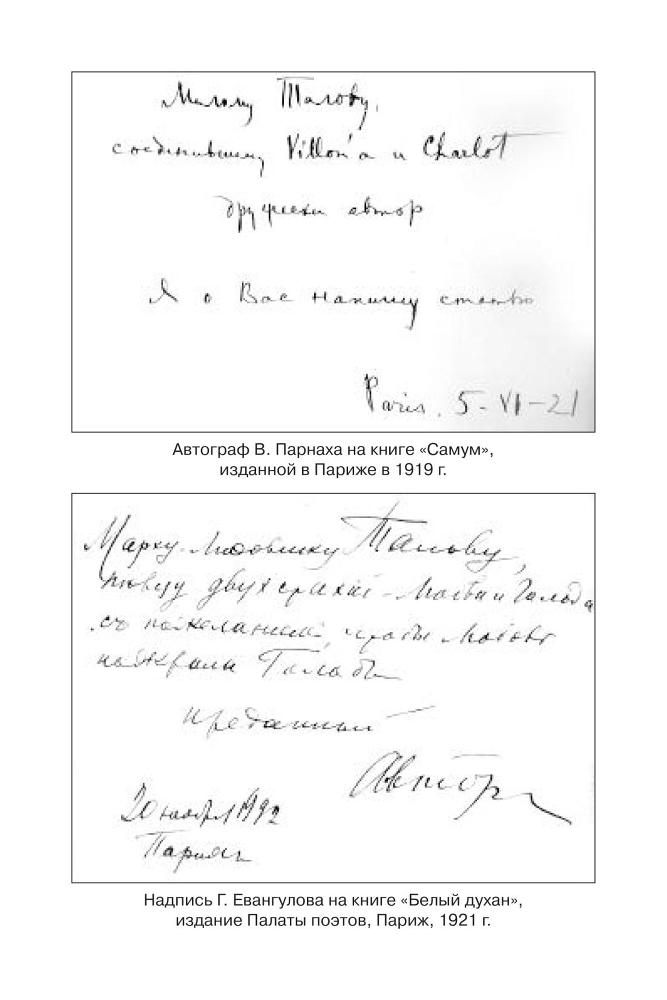 Милому Талову,
соединившему Villon'а и Charlot
дружески автор
Я о Вас напишу статью
Paris. 5-VI-21
Автограф В. Парнаха на книге «Самум»,
изданной в Париже в 1919 г.
Марку-Людовику Талову,
певцу двух стихий – Любви и Голода
съ пожеланием, чтобы Любовь
Голодъ
преданный
Авторъ
20 ноября 1922
Парижъ
Надпись Г. Евангулова на книге «Белый духан»,
издание Палаты поэтов, Париж, 1921 г.